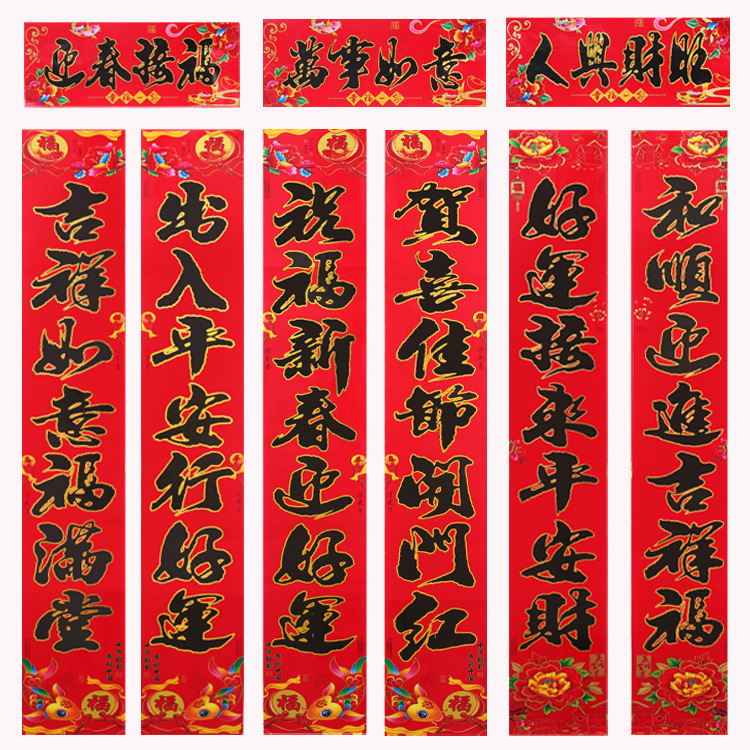 迎春接福
萬事如意
人興財旺
福
吉祥如意福滿堂
福
福
出入平安行好運
福
福
祝福新春迎好運
福
福
賀喜佳節開門紅
福
福
好運接來平安財
福
和順迎進吉祥福